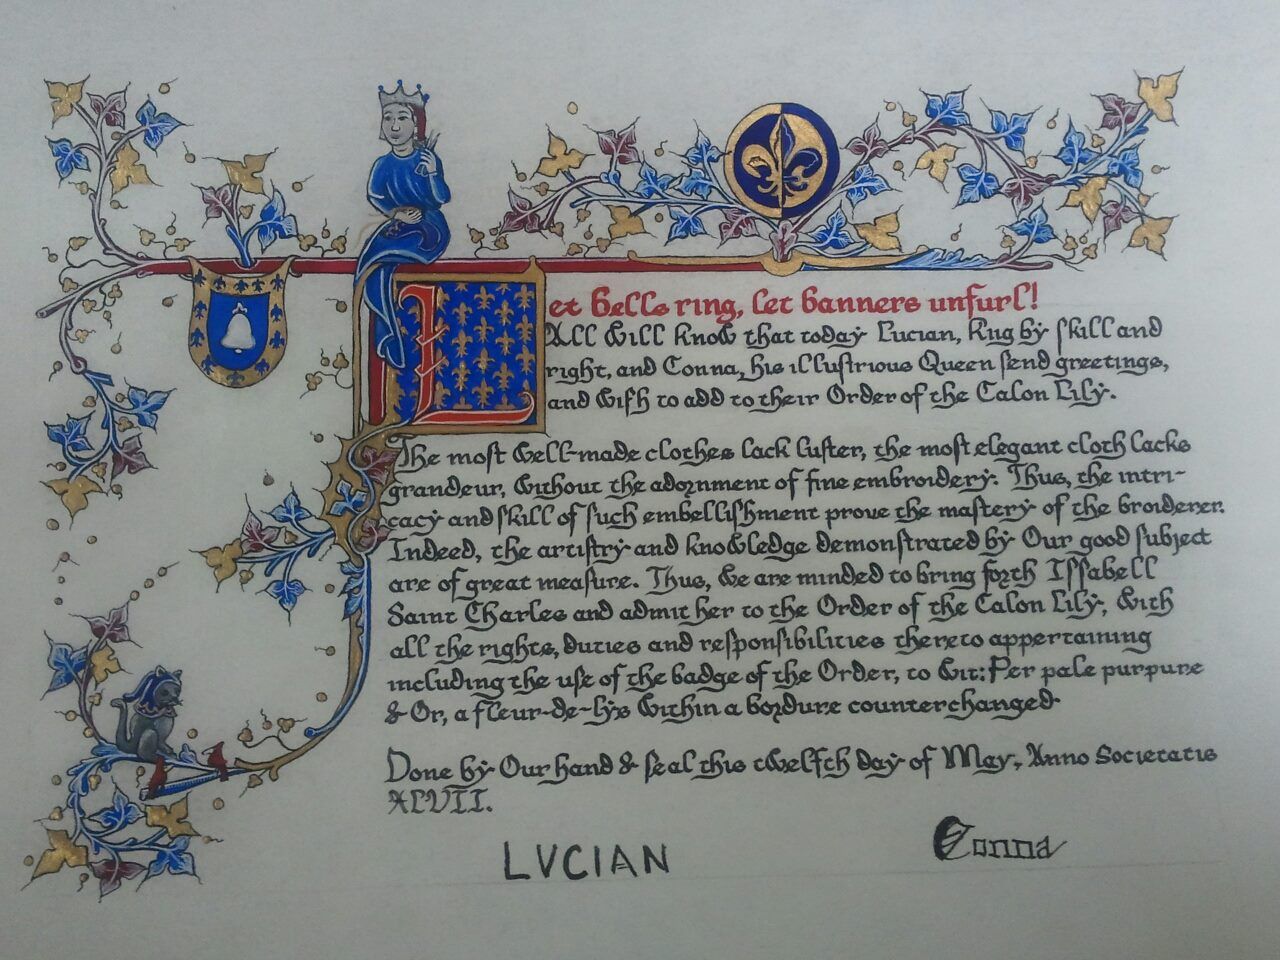 Let bells ring, let banners unfurl!
All will know that today Lucian, king by skill and
right, and Conna, his illustrious Queen send greetings,
and wish to add to their Order of the Calon Lily.
The most well-made clothes lack luster, the most elegant cloth lacks
grandeur, without the adornment of fine embroidery. Thus, the intri-
cacy and skill of such embellishment prove the mastery of the broiderer.
Indeed, the artistry and knowledge demonstrated by Our good subject
are of great measure. Thus, we are minded to bring forth Issabell
Saint Charles and admit her to the Order of the Calon Lily, with
all the rights, duties and responsibilities thereto appertaining
including the use of the badge of the Order, to wit: Per pale purpure
& Or, a fleur-de-lys within a bordure counterchanged.
Done by Our hand & seal this twelfth day of May, Anno Societatis
XLVII.
LVCIAN
Conna